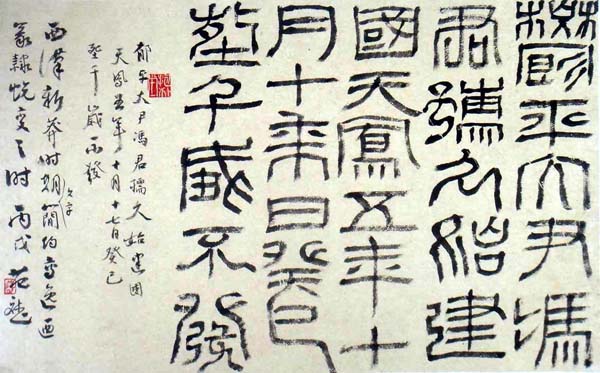 鬱平大尹馮
君孺久始建
國天鳳五年十
月十桼日癸巳
葬千歲不發
郁平大尹馮君孺久始建國
天鳳五年十月十七日癸巳
葬千歲不發
西漢新莽時期文字簡約高逸
篆隸蛻變之時 丙戌 范